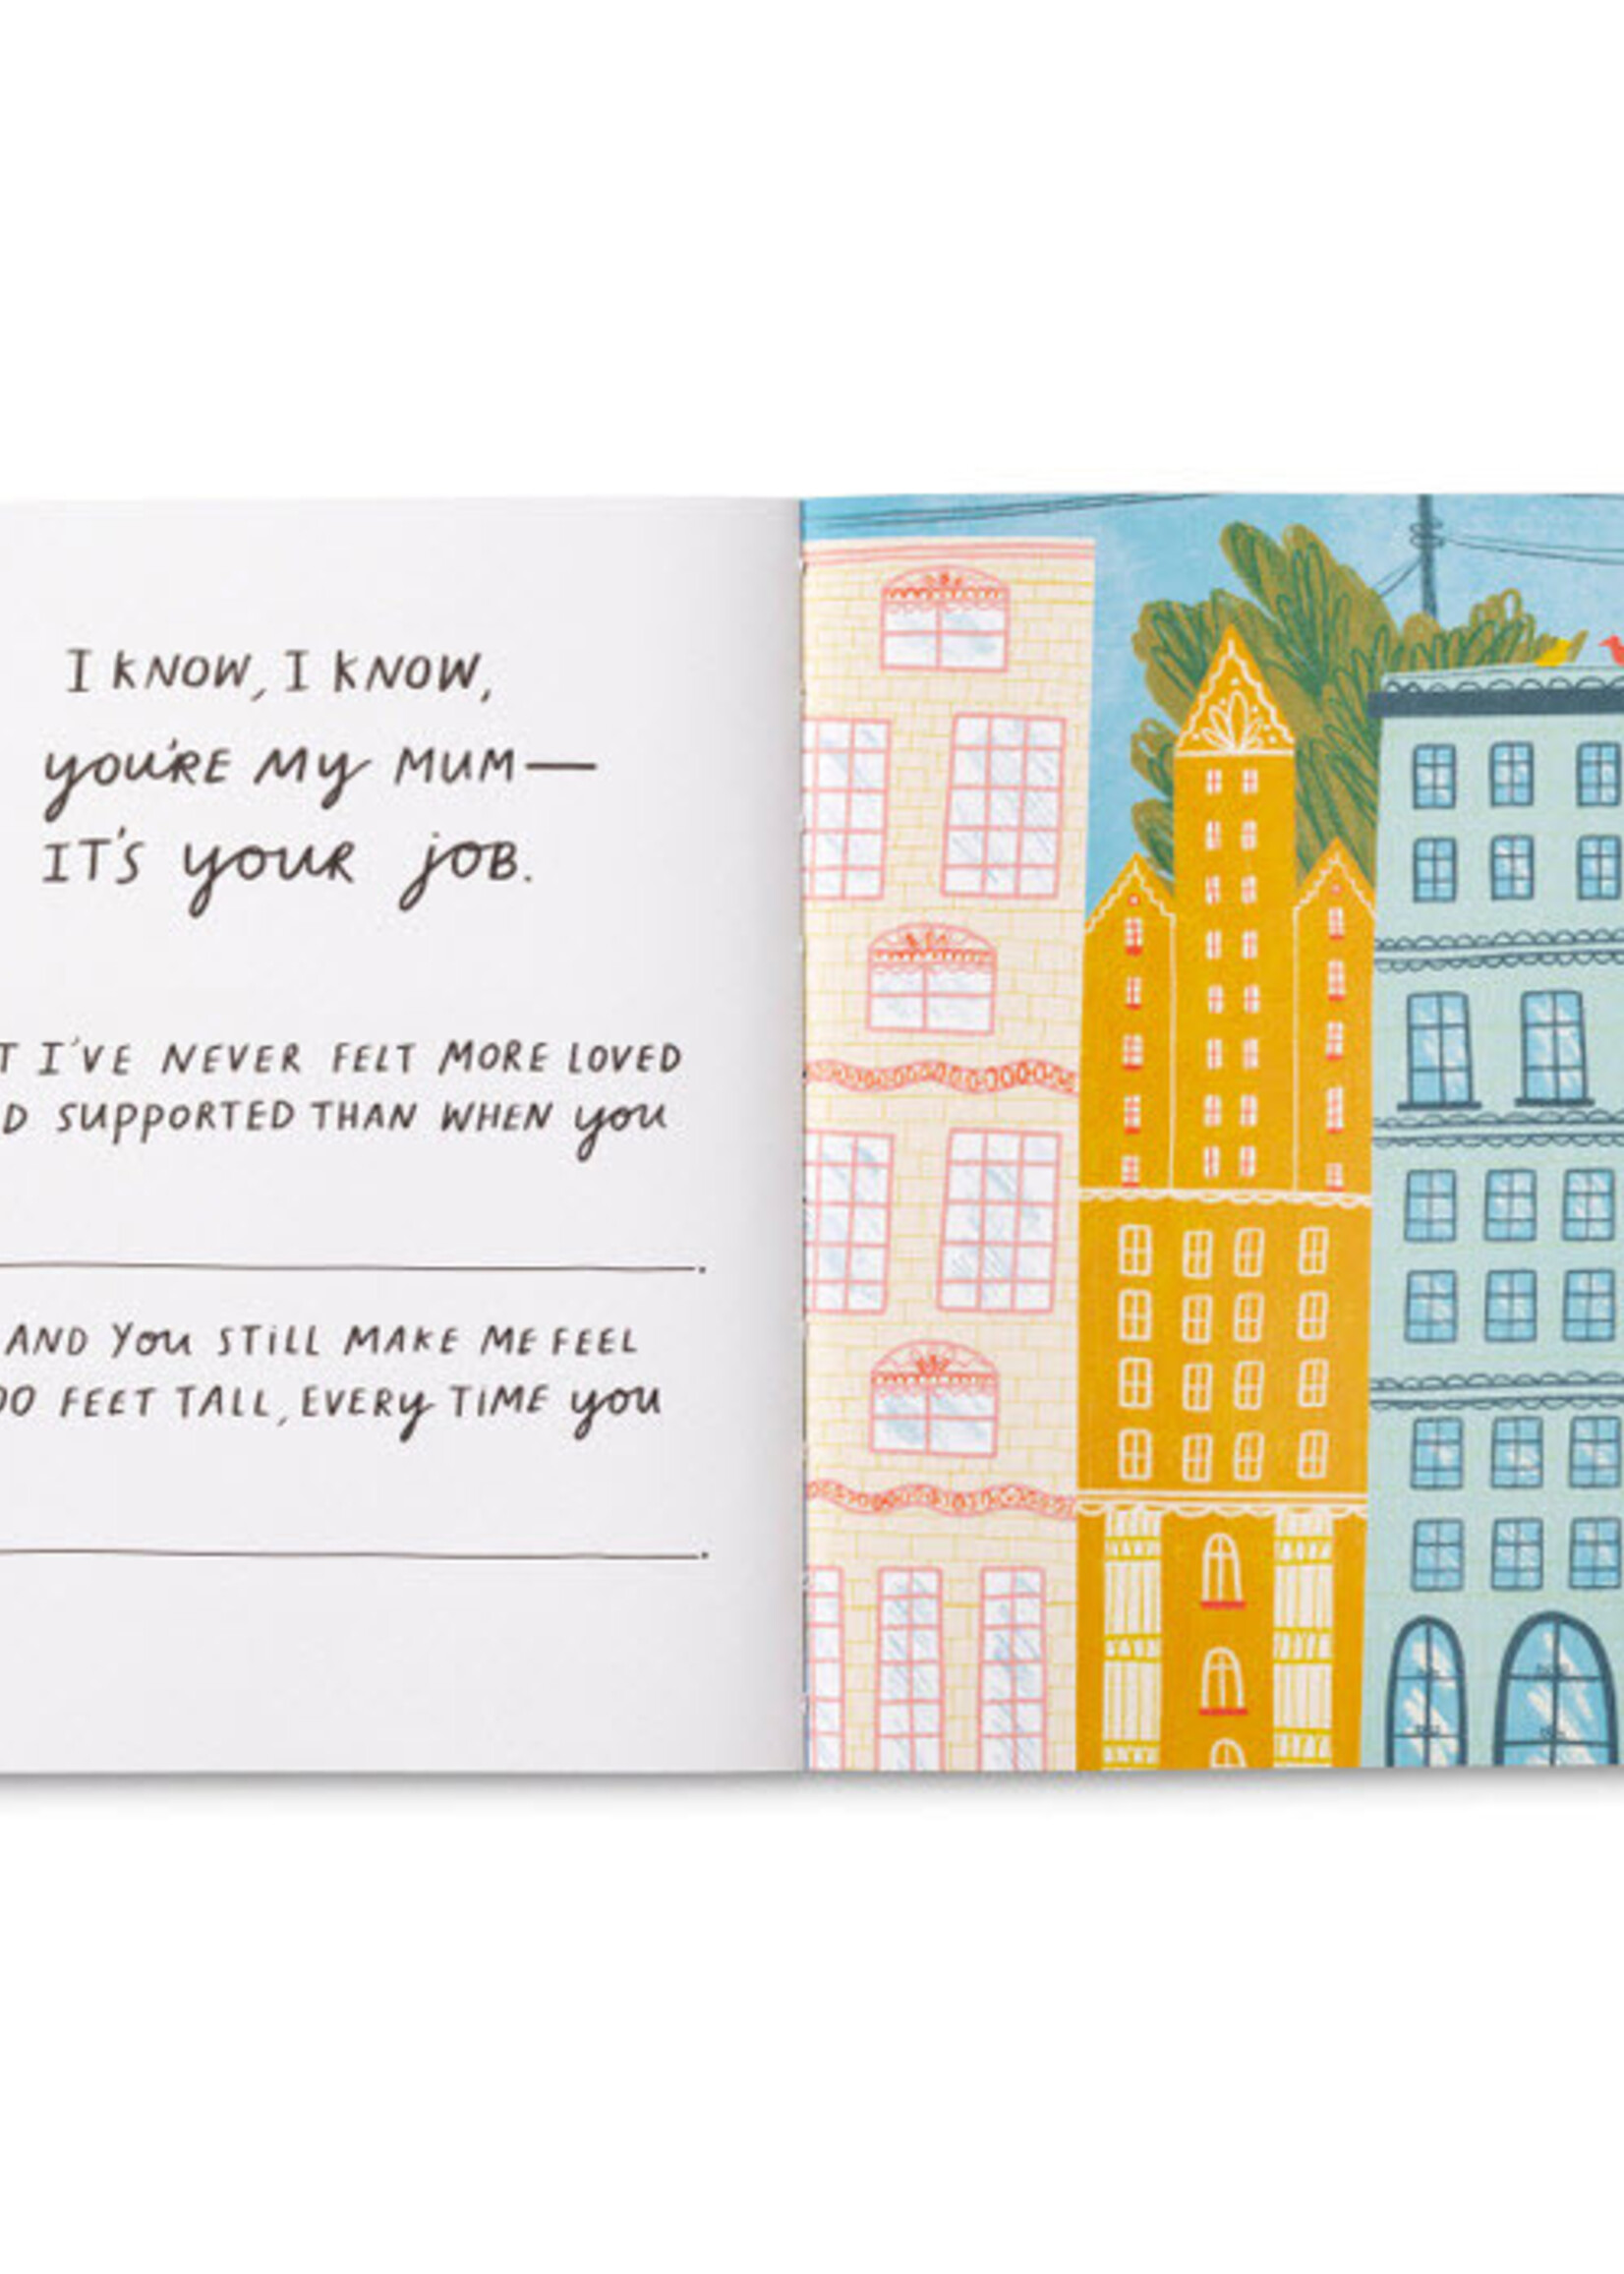 I KNOW, I KNOW,
YOU'RE MY MUM—
IT'S YOUR JOB.
I'VE NEVER FELT MORE LOVED
SUPPORTED THAN WHEN YOU
.
AND YOU STILL MAKE ME FEEL
FEET TALL, EVERY TIME YOU
.